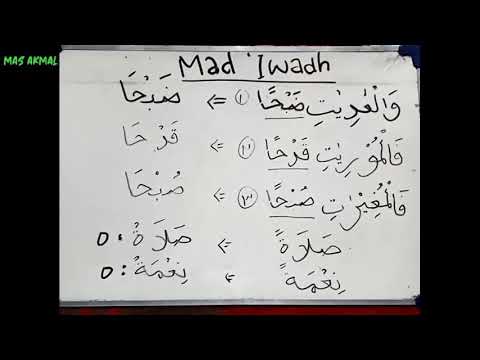 MAS AKMAL
Mad 'Iwadh
وَالْعٰدِيٰتِ ضَبْحًا ١ => ضَبْحَا
فَالْمُوْرِيٰتِ قَدْحًا ٢ => قَدْحَا
فَالْمُغِيْرٰتِ صُبْحًا ٣ => صُبْحَا
صَلَاةً => صَلَاةْ : ه
نِعْمَةً => نِعْمَةْ : ه